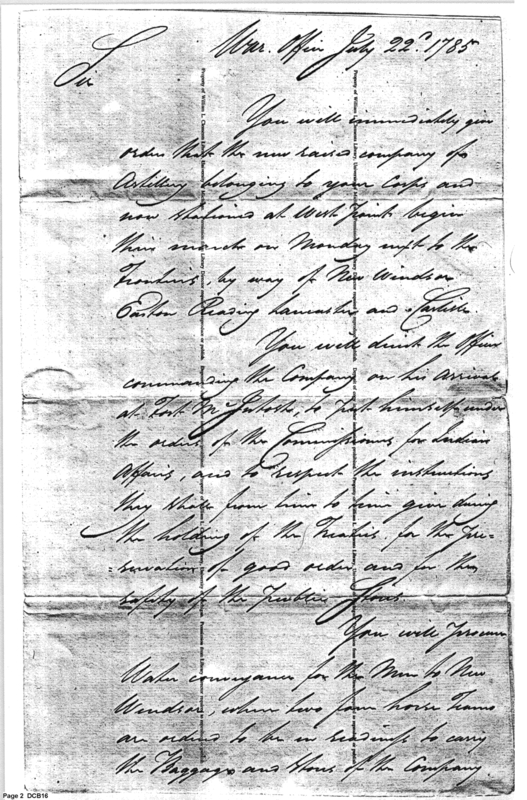 War Office July 22d. 1785
Sir
You will immediately give
orders that the new raised company of
Artillery belonging to your Corps and
now stationed at West Point begin
their march on Monday next to the
Frontiers, by way of New Windsor
Easton Reading Lancaster and Carlisle.
You will direct the Officer
commanding the Company on his arrival
at Fort McIntosh, to put himself under
the orders of the Commissioners for Indian
Affairs, and to respect the instructions
they shall from time to time give during
the holding of the Treaties, for the Pre-
=servation of good order, and for the
safety of the public Stores.
You will procure
Water conveyance for the Men to New
Windsor, where two four horse Teams
are ordered to be in readiness to carry
the Baggage and Stores of the Company
Page 2 DCB16